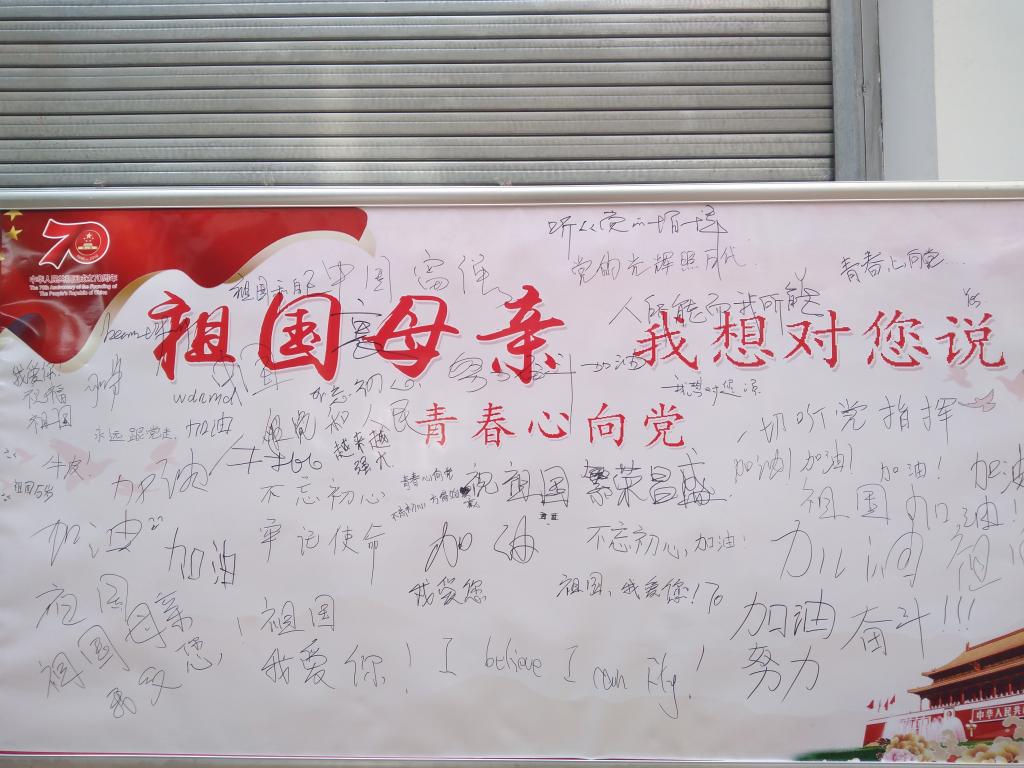 中华人民共和国成立70周年
The 70th Anniversary of the Founding of
The People's Republic of China
听从党的一切
党的光辉照万代
青春心向党...
中国富强
人所能而我所能
祖国母亲 我想对您说
我爱你
祝福
祖国
wdnmd
不忘初心
加油
我想对您说
青春心向党
永远跟党走,加油
和人民
越来越
强大
一切听党指挥
牛皮!
加油
牛批
不忘初心
青春心向党
祝祖国繁荣昌盛
加油!加油!
加油!
加油
祖国加油!
加油
加油
牢记使命
加油
不忘初心,加油!
加油 祖
我爱您
祖国,我爱您!70
祖国
母亲
祖国
我爱您!
祖国
我爱你!
I believe I can fly!
加油 奋斗!!!
努力
中华人民共